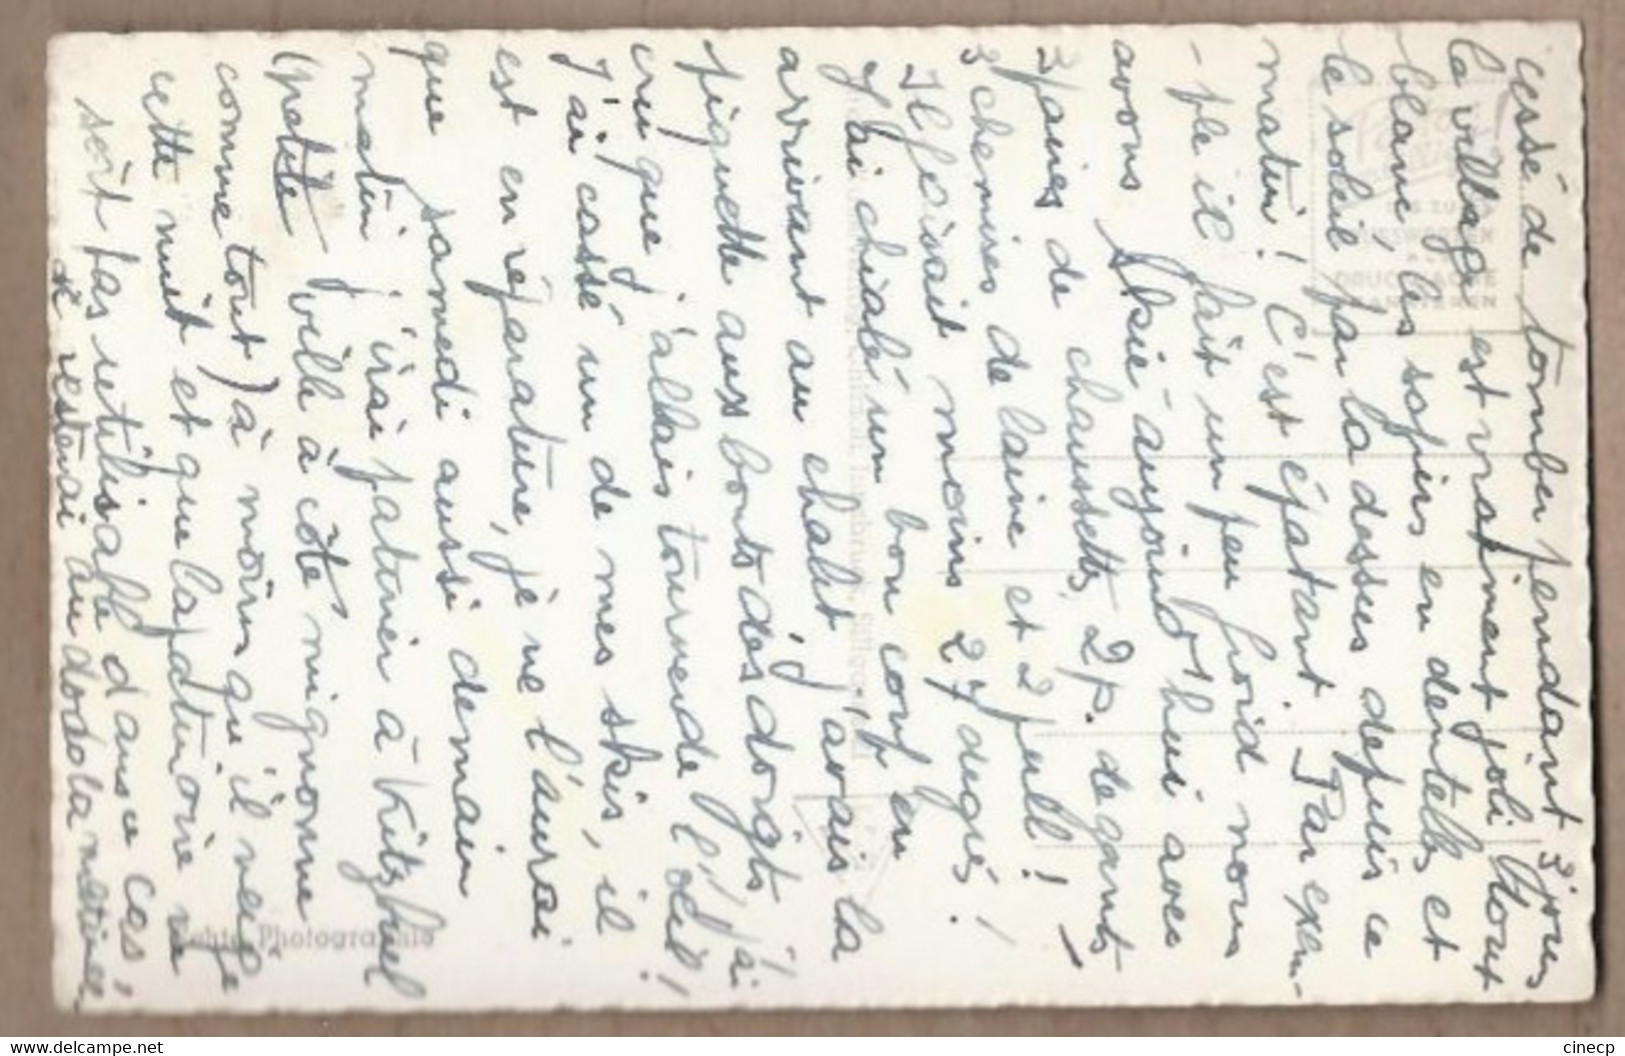 cessé de tomber pendant 3 jours
le village est vraiment joli tout
blanc, les sapins en dentelle et
le soleil par la dessus depuis ce
matin! C'est épatant Par exem-
-ple il fait un peu froid nous
avons skié aujourd'hui avec
3 paires de chaussettes, 2 p. de gants,
3 chemises de laine et 2 pull!
Il faisait moins 27 degrés!
J'ai chialé un bon coup en
arrivant au chalet j'avais la
piquette aux bouts des doigts, j'ai
cru que j'allais tourner de l'œil!
J'ai cassé un de mes skis, il
est en réparature, je ne l'aurai
que samedi aussi demain
matin j'irai patiner à Kitzbuel
(petite ville à côté mignonne
comme tout) à moins qu'il neige
cette nuit et que la patinoire ne
soit pas utilisable dans ce cas,
je resterai au dodo la matinée
BIS ZU
WORTEN
ALS
DRUCKSACHE
FRANKIEREN
Echte Photographie